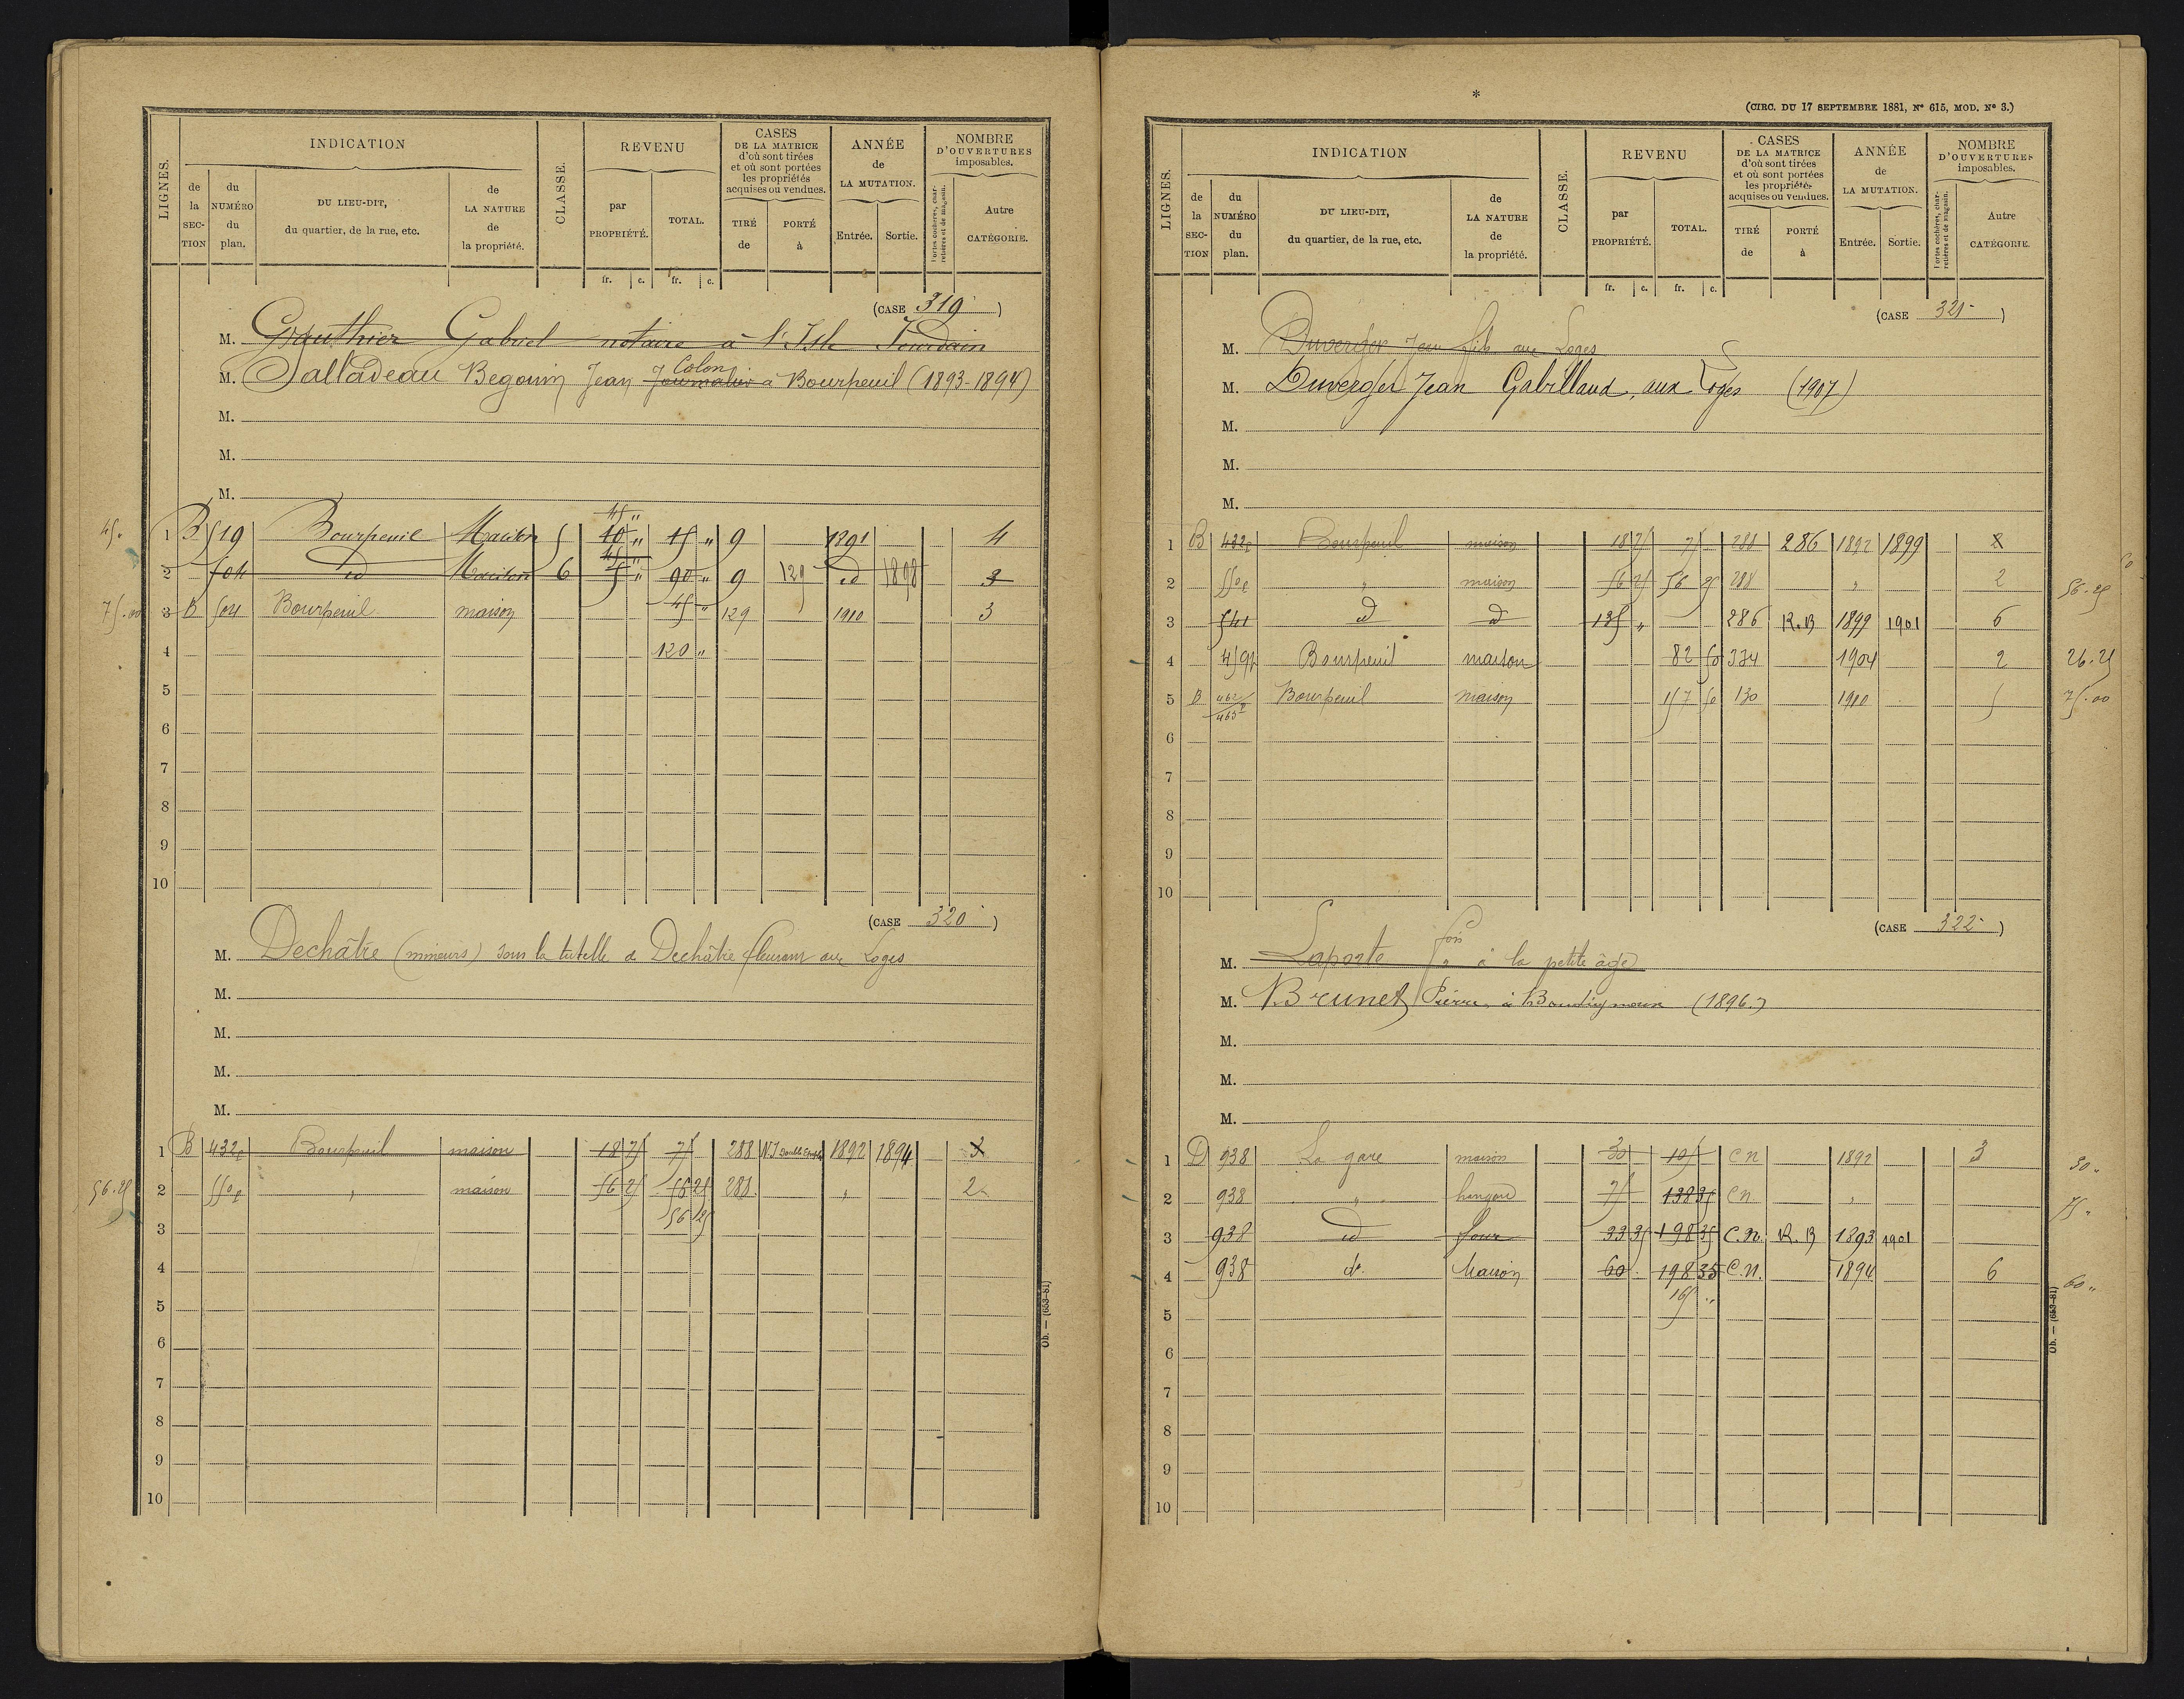 LIGNES.
INDICATION
de la SECTION
du NUMÉRO du plan.
DU LIEU-DIT, du quartier, de la rue, etc.
de LA NATURE de la propriété.
CLASSE.
REVENU
par PROPRIÉTÉ.
TOTAL.
CASES DE LA MATRICE d'où sont tirées et où sont portées les propriétés acquises ou vendues.
TIRÉ de
PORTÉ à
ANNÉE de LA MUTATION.
Entrée.
Sortie.
NOMBRE D'OUVERTURES imposables.
Portes cochères, charretières et de magasin.
Autre CATÉGORIE.
fr. c. fr. c.
(CASE 319)
M. Gauthier Gabriel notaire à l'Isle Jourdain
M. Salladeau Begouin Jean Journalier Colon à Bourpeuil (1893-1894)
M.
M.
M.
45.
1 B 519 Bourpeuil Maison 5 10 " 45 " 9 1891 4
2 504 id Maison 6 90 " 9 129 id 1898 3
75.00 3 B 504 Bourpeuil maison 45 " 129 1910 3
4 120 "
5
6
7
8
9
10
(CASE 320)
M. Dechâtre (mineurs) sous la tutelle de Dechâtre fleurant aux Loges
M.
M.
M.
M.
1 B 432p Bourpeuil maison 18 75 75 288 1892 1894
56.25 2 550p " maison 56 25 56 25 288 " 2
3 56 25
4
5
6
7
8
9
10
Ob. — (653-81)
*
(CIRC. DU 17 SEPTEMBRE 1881, N° 615, MOD. N° 3.)
LIGNES.
INDICATION
de la SECTION
du NUMÉRO du plan.
DU LIEU-DIT, du quartier, de la rue, etc.
de LA NATURE de la propriété.
CLASSE.
REVENU
par PROPRIÉTÉ.
TOTAL.
CASES DE LA MATRICE d'où sont tirées et où sont portées les propriétés acquises ou vendues.
TIRÉ de
PORTÉ à
ANNÉE de LA MUTATION.
Entrée.
Sortie.
NOMBRE D'OUVERTURES imposables.
Portes cochères, charretières et de magasin.
Autre CATÉGORIE.
fr. c. fr. c.
(CASE 321)
M. Duverger Jean fils aux Loges
M. Duverger Jean Gabillaud, aux Loges (1907)
M.
M.
M.
1 B 432p Bourpeuil maison 18 75 75 288 286 1892 1899 2
2 550p " maison 56 25 56 25 288 " 2 56.25
3 541 d d 135 " 286 R.B 1899 1901 6
4 Bourpeuil maison 82 50 334 1904 2 26.25
5 B 462/463p Bourpeuil maison 157 50 130 1910 5 75.00
6
7
8
9
10
(CASE 322)
M. Laporte à la petite âge
M. Brunet Pierre, à (1896.)
M.
M.
M.
1 D 938 La gare maison 30 105 C n 1892 3 30 "
2 938 " hangard 75 138 35 C n. " 75 "
3 938 id four 33 35 198 35 C.n. R. B 1893 1901
4 938 d. Maison 60. 198 35 C.n. 1894 6 60 "
5 165 "
6
7
8
9
10
Ob. — (653-81)